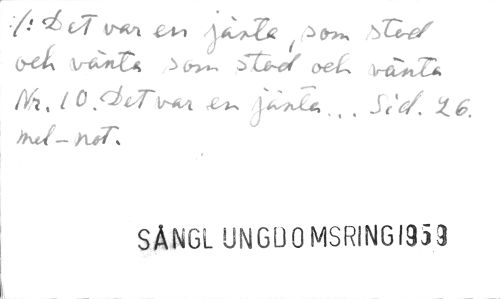 :/: Det var en jänta, som stod
och vänta som stod och vänta
Nr. 10. Det var en jänta... Sid. 26.
mel-not.
SÅNGL UNGDOMSRING 1959